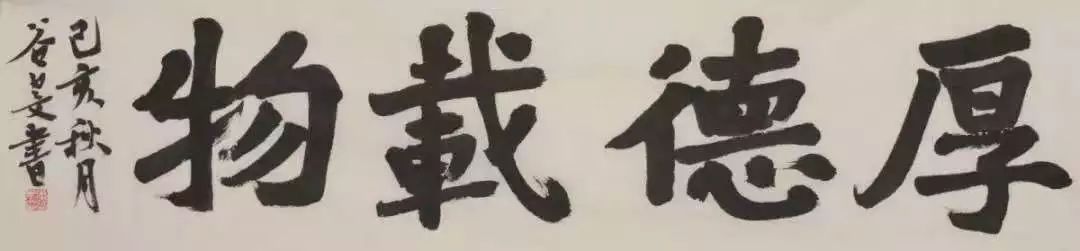 厚德載物
己亥秋月
谷旻書